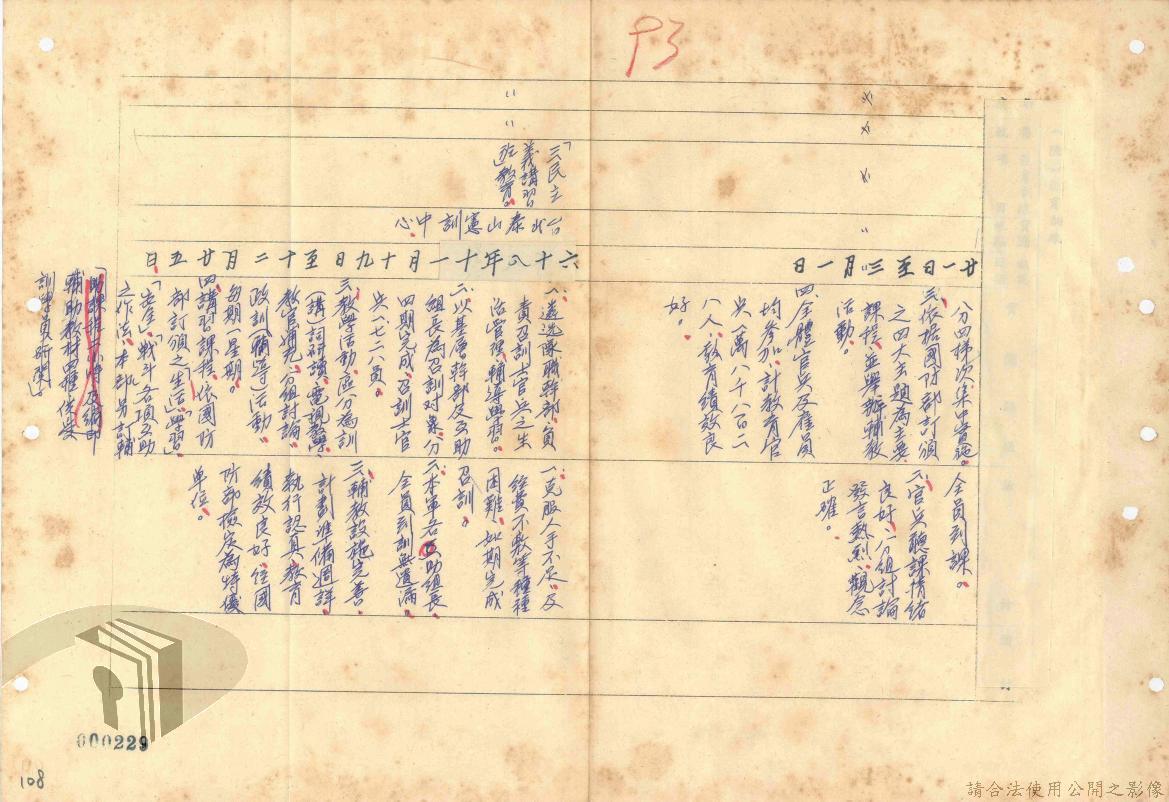 93
〃
〃
廿一日至三月一日
分四梯次集中實施。
三、依据國防部訂頒
之四大主題為主要
課程、並舉辦輔教
活動。
四、全體官兵及雇員
均參加、計教育官
兵一萬八千八百二
八人、教育績效良
好。
全員到課。
二、官兵聽課情緒
良好、分組討論
發言熱烈、觀念
正確。
〃
〃
「三民主
義講習
班」教育。
台北泰山憲訓中心
六十八年十一月十九日至十二月廿五日
一、遴选隊職幹部、負
責召訓士官兵之生
活管理、輔導與學習。
二、以基層幹部及互助
組長為召訓对象、分
四期完成、召訓士官
兵六七二八員。
三、教學活動、區分為訓
(講)詞研讀、電視教學、
教官授課、分組討論、
政訓(輔導)活動、
每期一星期。
四、講習課程、依國防
部訂頒之「生活」「學習」
「生產」「戰斗」各項互助
之作法、本部另訂輔
輔助教材四種、供受
訓學員研閱」
一、克服人手不足、及
經費不敷等種種
困難、如期完成
召訓。
二、本軍各互助組長、
全員到訓無遺漏。
三、輔教設施完善、
計劃準備週詳、
執行認真、教育
績效良好、經國
防部檢定為特優
單位。
000229
108
請合法使用公開之影像